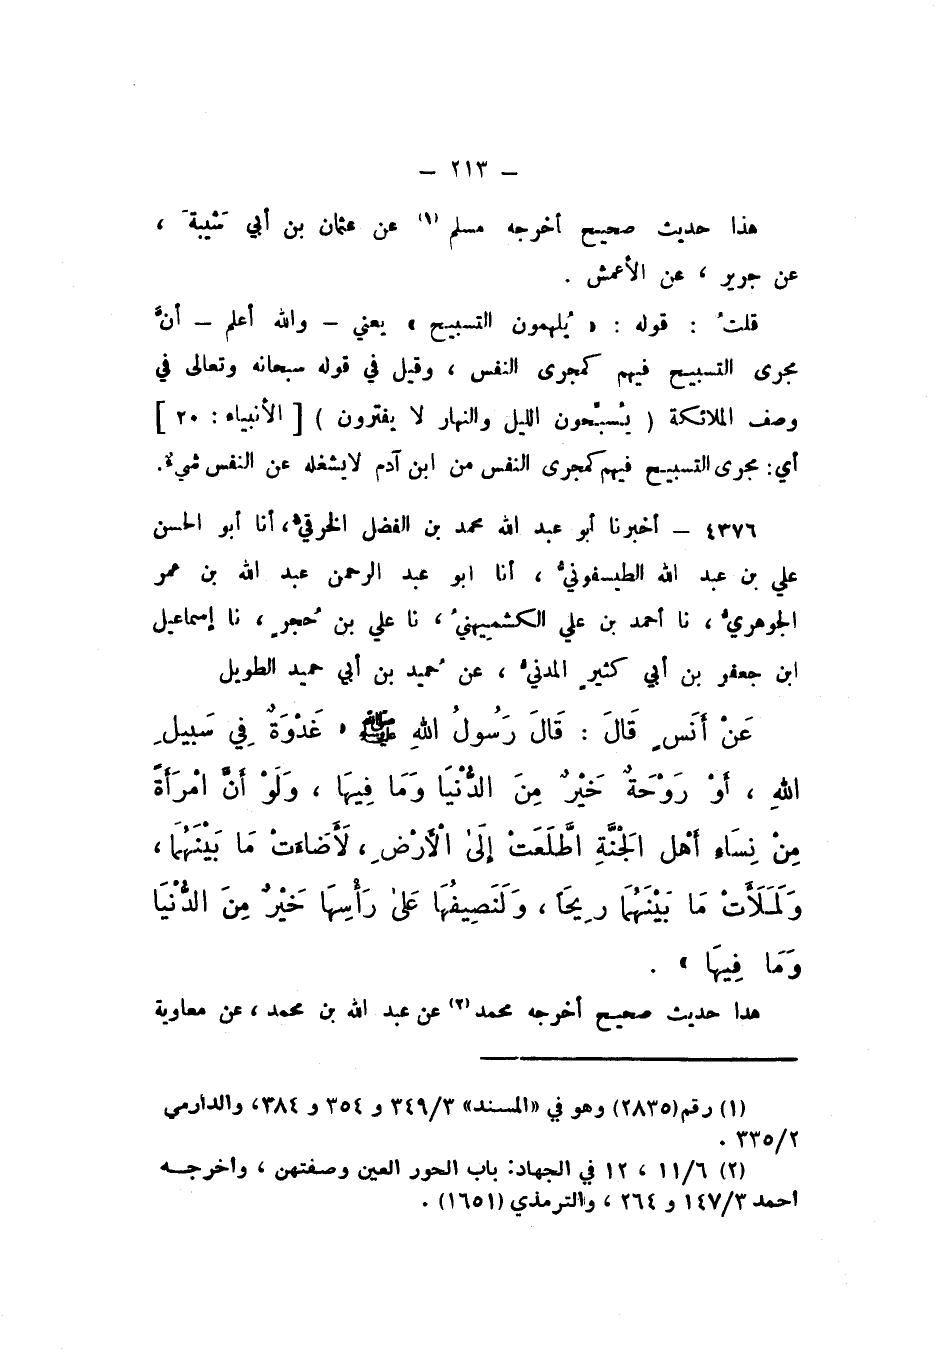 – ٢١٣ –
هذا حديث صحيح أخرجه مسلم (١) عن عثمان بن أبي شَيْبَةَ ،
عن جرير ، عن الأعمش .
قلتُ : قوله : « يُلهمون التسبيح » يعني – والله أعلم – أنَّ
مجرى التسبيح فيهم كمجرى النفس ، وقيل في قوله سبحانه وتعالى في
وصف الملائكة ( يُسبِّحون الليل والنهار لا يفترون ) [ الأنبياء : ٢٠ ]
أي: مجرى التسبيح فيهم كمجرى النفس من ابن آدم لايشغله عن النفس شيء.
٤٣٧٦ – أخبرنا أبو عبد الله محمد بن الفضل الخرقيُّ، أنا أبو الحسن
علي بن عبد الله الطيسفونيُّ ، أنا ابو عبد الرحمن عبد الله بن عمر
الجوهريُّ ، نا أحمد بن علي الكشميهنيُّ ، نا علي بن حُجرٍ ، نا إسماعيل
ابن جعفر بن أبي كثيرٍ المدنيُّ ، عن حُميد بن أبي حميد الطويل
عَنْ أَنَسٍ قَالَ : قَالَ رَسُولُ اللهِ ﷺ « غَدْوَةٌ فِي سَبِيلِ
اللهِ ، أَوْ رَوْحَةٌ خَيْرٌ مِنَ الدُّنْيَا وَمَا فِيهَا ، وَلَوْ أَنَّ امْرَأَةً
مِنْ نِسَاءِ أَهْلِ الْجَنَّةِ اطَّلَعَتْ إِلَىٰ الْأَرْضِ ، لَأَضَاءَتْ مَا بَيْنَهُمَا ،
وَلَمَلَأَتْ مَا بَيْنَهُمَا رِيحَاً ، وَلَنَصِيفُهَا عَلىٰ رَأْسِهَا خَيْرٌ مِنَ الدُّنْيَا
وَمَا فِيهَا » .
هذا حديث صحيح أخرجه محمد (٢) عن عبد الله بن محمد ، عن معاوية
(١) رقم (٢٨٣٥) وهو في «المسند» ٣٤٩/٣ و ٣٥٤ و ٣٨٤، والدارمي
٣٣٥/٢ .
(٢) ١١/٦ ، ١٢ في الجهاد: باب الحور العين وصفتهن ، وأخرجه
احمد ١٤٧/٣ و ٢٦٤ ، والترمذي (١٦٥١) .